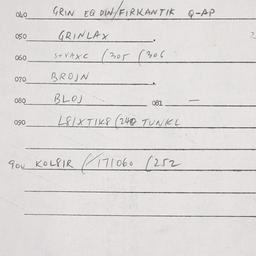 040 GRIN EQ DIN/FIRKANTIK Q-AP
050 GRINLAX
060 SOVAXC (305 (306
070 BROJN
080 BLOJ 081 —
090 L8IXTIK8 (240 TUNKL
900 KOL8IR (/171060 (252